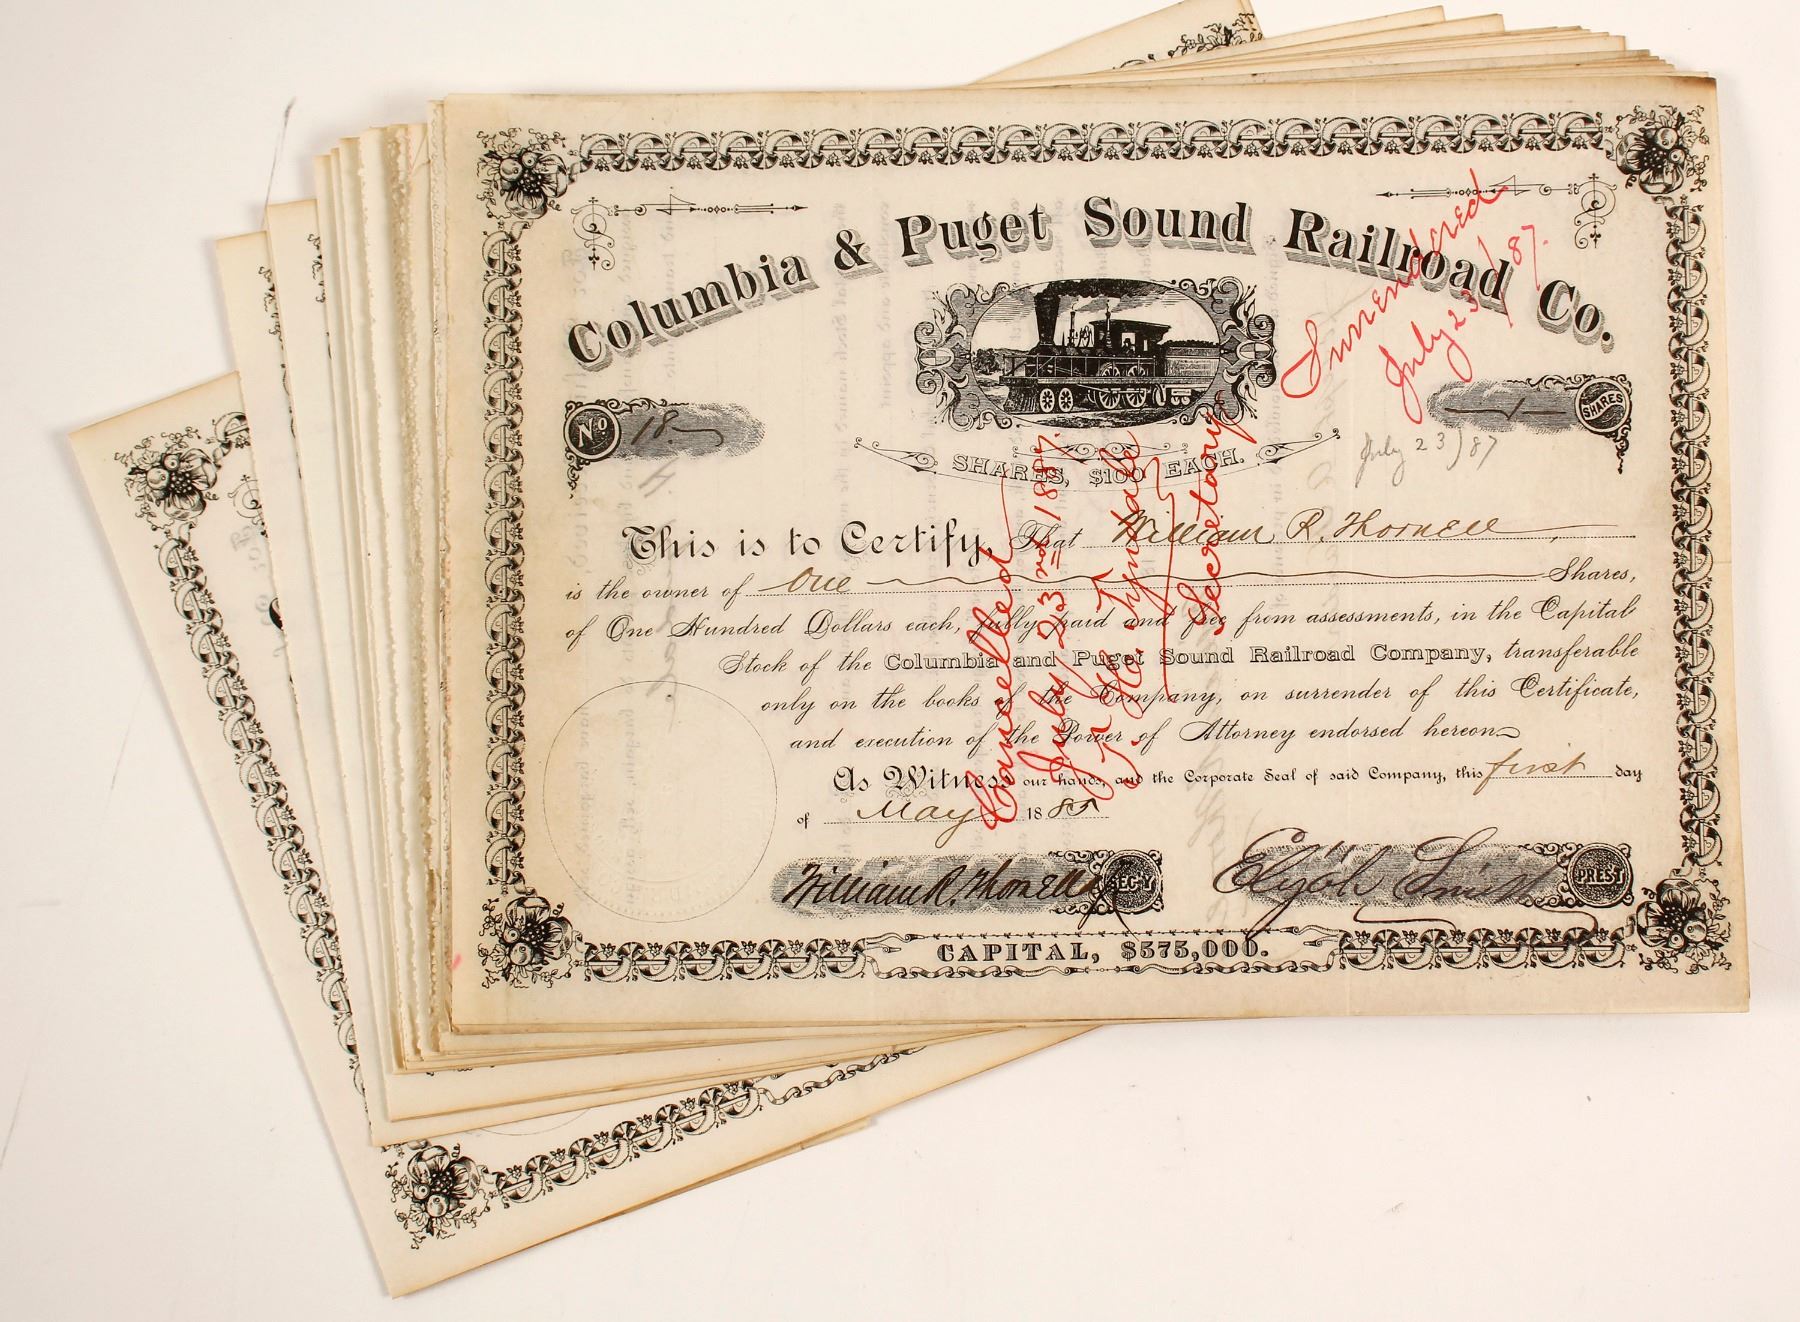 Columbia & Puget Sound Railroad Co.
Surrendered
July 23/87.
No 18.
1 SHARES
SHARES, $100 EACH.
July 23/87
This is to Certify, That William R. Thornell,
is the owner of One Shares,
of One Hundred Dollars each, fully paid and free from assessments, in the Capital
Stock of the Columbia and Puget Sound Railroad Company, transferable
only on the books of the Company, on surrender of this Certificate,
and execution of the Power of Attorney endorsed hereon
As Witness our hands, and the Corporate Seal of said Company, this first day
of May 1885
Cancelled
July 23rd 1887.
Secretary
William R. Thornell SEC'Y
Elijah Smith PREST
CAPITAL, $575,000.